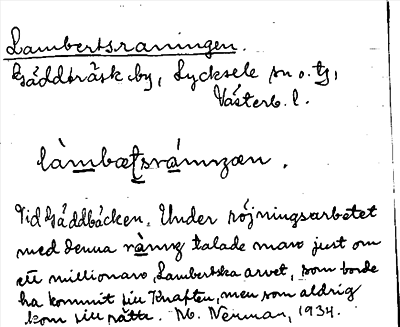 Lambertsraningen.
Gäddträsk by, Lycksele sn o. tg,
Västerb. l.
làmbætsrámzæn.
Vid Gäddbäcken. Under röjningsarbetet
med denna talade man just om
ett millionarv, Lambertska arvet, som borde
ha kommit till Knaften, men som aldrig
kom till rätta. M. Nenman, 1934.